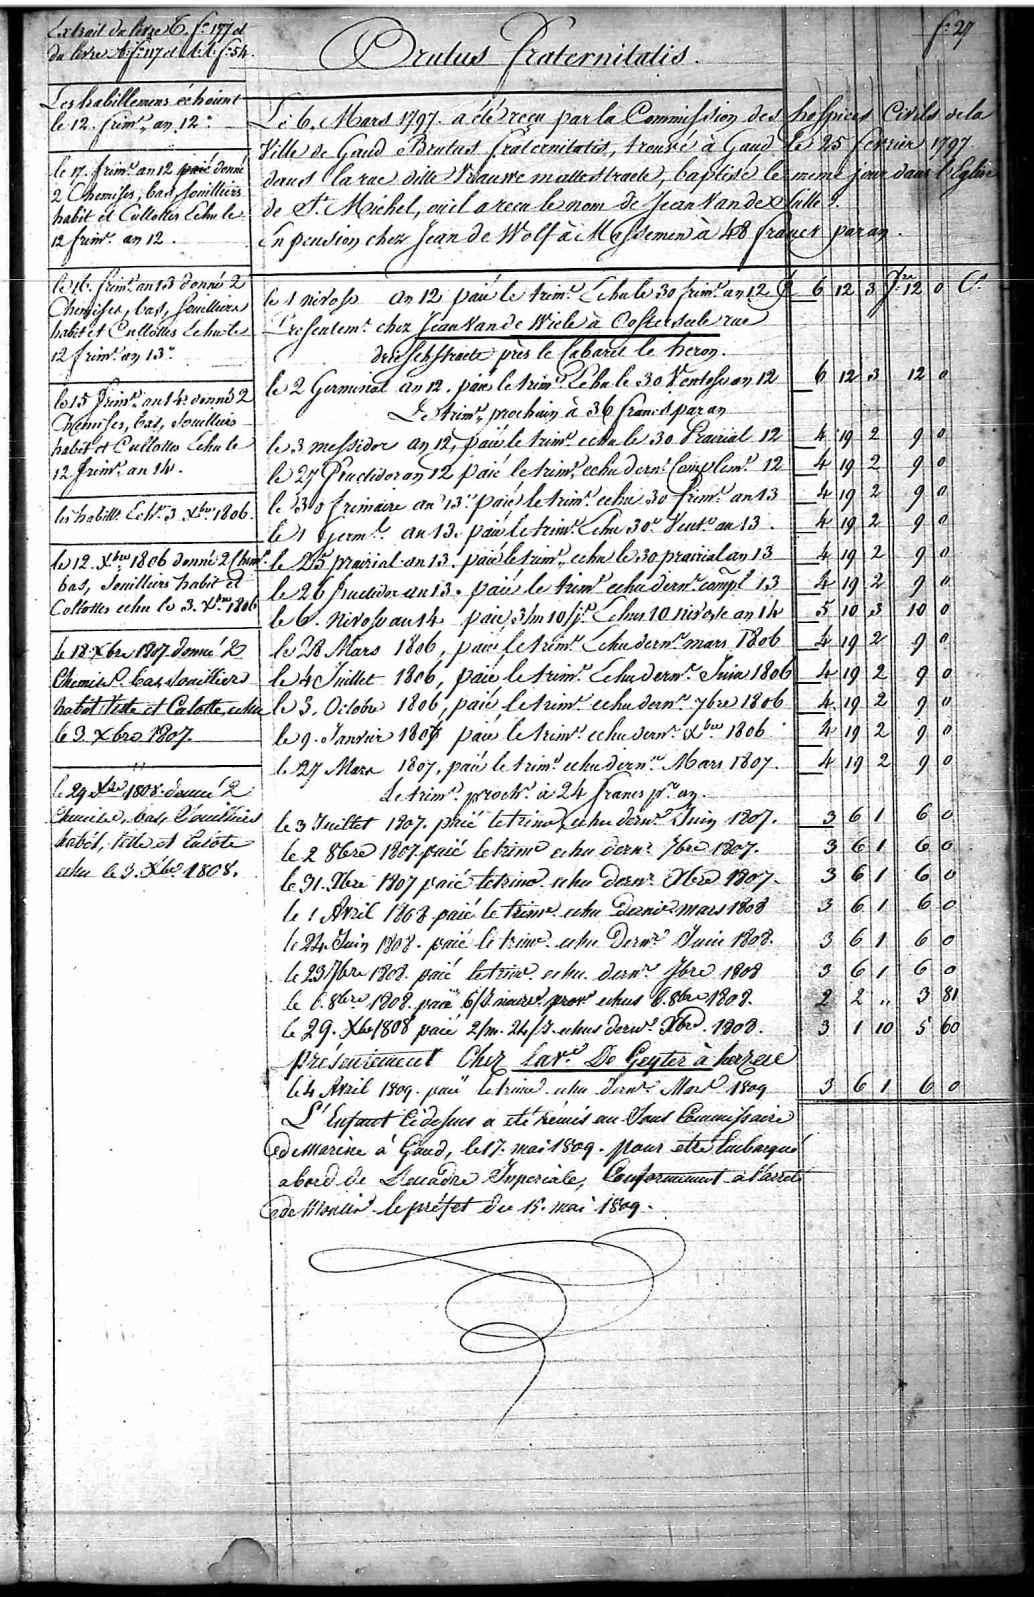 Extrait du livre C. f.° 177 et
du livre f.° 17 et f. 54.
f.° 27
Brutus Fraternitatis.
Les habillemens échoient
le 12. frim.re an 12.e
le 17. frim.e an 12 paié donné
2 Chemises, bas souilliers
habit et Cullottes Echu le
12 frim.e an 12.
le 16. frim.e an 13 donné 2
Chemises, bas, souilliers
habit et Cullottes Echu le
12 frim.e an 13.e
le 15 frim.e an 14. donné 2
Chemises, bas, souilliers
habit et Cullottes Echu le
12 frim.e an 14.
les habill. Ech. 3 Xbre 1806.
le 12. Xbre 1806 donné 2 Chem.
bas, Souilliers habit et
Collottes echu le 3. Xbre 1806
le 18 Xbre 1807 donné 2
Chemises bas Souilliers
habit Veste et Calotte echu
le 3. Xbre 1807.
le 29 Xbre 1808 donné 2
Chemise, bas, Souilliers
habit, veste et Culote
echu le 3. Xbre 1808.
Le 6. Mars 1797. a été reçu par la Commission des hospices Civils de la
Ville de Gand Brutus fraternitatis, trouvé à Gand le 25 fevrier 1797
dans la rue ditte Vrauwe straete, baptisé le meme jour dans l'Eglise
de St. Michel, où il a reçu le nom de Jean Van de
En pension chez Jean de Wolf à Massemen à 48 francs par an.
le 1 nivose an 12 paié le trim.e Echu le 30 frim.e an 12 6 12 3 frc 12 0 C.s
Presentem.t chez Jean Van de Wiele à Oosterzeele rue
driesch straete près le Cabaret le heron.
le 2 Germinal an 12. paié le trim.e Echu le 30 Ventose an 12 6 12 3 12 0
Le trim.e prochain à 36 francs par an
le 3 messidor an 12, paié le trim.e echu le 30 Prairial 12 4 19 2 9 0
le 27 fructidor an 12 paié le trim.e echu dern.r Complem.t 12 4 19 2 9 0
le 30 frimaire an 13.e paié le trim.e echu 30 frim.e an 13 4 19 2 9 0
le 1 Germ.l an 13. paié le trim.e Echu 30.e Vent.e an 13. 4 19 2 9 0
le 25 prairial an 13. paié le trim.e echu le 30 prairial an 13 4 19 2 9 0
le 26 fructidor an 13. paié le trim.e echu dern.r compl.t 13 4 19 2 9 0
le 6. Nivose an 14 paié 3/m 10/j.s Echus 10 nivose an 14 5 10 3 10 0
le 28 Mars 1806, paié le trim.e Echu dern.r mars 1806 4 19 2 9 0
le 4 Juillet 1806, paié le trim.e Echu dern.r Juin 1806 4 19 2 9 0
le 3. Octobre 1806, paié le trim.e echu dern.r 7bre 1806 4 19 2 9 0
le 9. Janvier 1807 paié le trim.e echu dern.r Xbre 1806 4 19 2 9 0
le 27 Mars 1807, paié le trim.e echu dern.r Mars 1807. 4 19 2 9 0
Le trim.e proch.n à 24 francs p.r an.
le 3 Juillet 1807. paié le trime echu dern.r Juin 1807. 3 6 1 6 0
le 2 8bre 1807. paié le trime echu dern.r 7bre 1807. 3 6 1 6 0
le 31. Xbre 1807 paié le trime echu dern.r Xbre 1807. 3 6 1 6 0
le 1 Avril 1808 paié le trime echu Dernier mars 1808 3 6 1 6 0
le 24 Juin 1808. paié le trime echu Dern.r Juin 1808. 3 6 1 6 0
le 23 7bre 1808. paié le trime echu dern.r 7bre 1808 3 6 1 6 0
le 6. 8bre 1808. paié echus 6. 8bre 1808. 2 2 " 3 81
le 29. Xbre 1808 paié 2/m. 24/J. echus dern.r Xbre 1808. 3 1 10 5 60
présentement Chez La v.e De Geyter à herzele
le 4 Avril 1809. paié le trime echu dern.r Mars 1809 3 6 1 6 0
L'Enfant Cidessus a eté remis au Sous Commissaire
de marine à Gand, le 17. mai 1809. pour etre Embarqué
abord de L'escadre Imperiale, Conformement à l'arreté
de le préfet du 15. mai 1809.